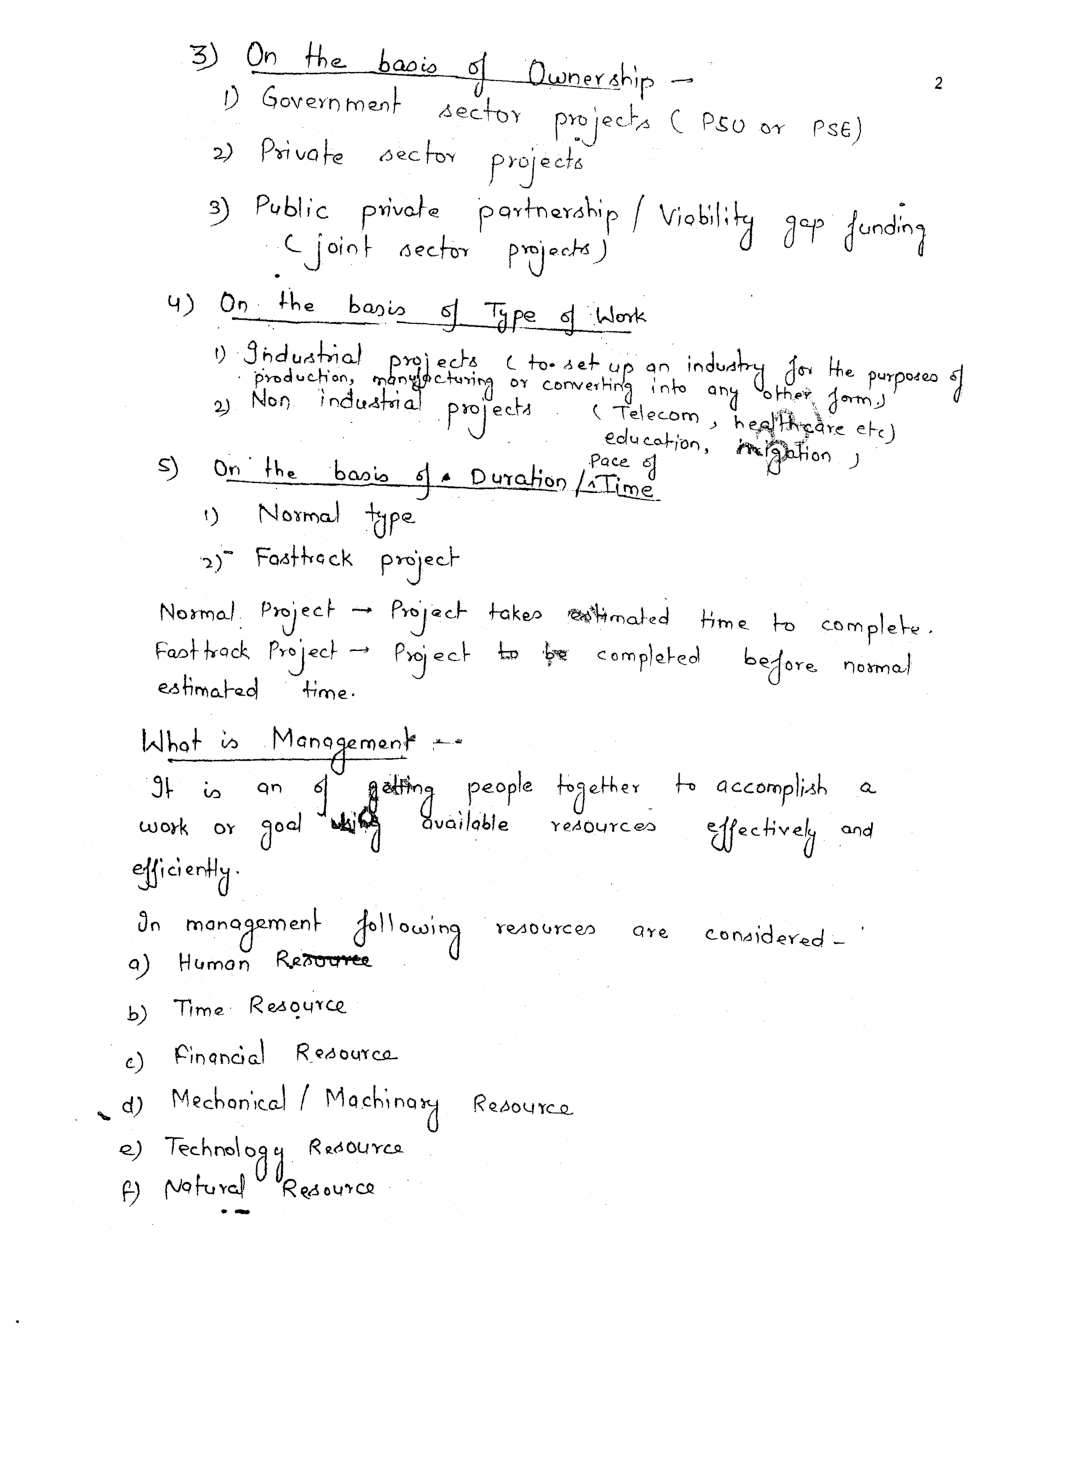 2
3) On the basis of Ownership –
1) Government sector projects ( PSU or PSE)
2) Private sector projects
3) Public private partnership / Viability gap funding
( joint sector projects)
4) On the basis of Type of Work
1) Industrial projects ( to set up an industry for the purposes of
production, manufacturing or converting into any other form)
2) Non industrial projects ( Telecom, healthcare etc)
education, irrigation,
5) On the basis of Duration / Pace of Time
1) Normal type
2) Fasttrack project
Normal Project → Project takes estimated time to complete.
Fast track Project → Project to be completed before normal
estimated time.
What is Management --
It is an of getting people together to accomplish a
work or goal using available resources effectively and
efficiently.
In management following resources are considered –
a) Human Resource
b) Time Resource
c) Financial Resource
d) Mechanical / Machinary Resource
e) Technology Resource
f) Natural Resource